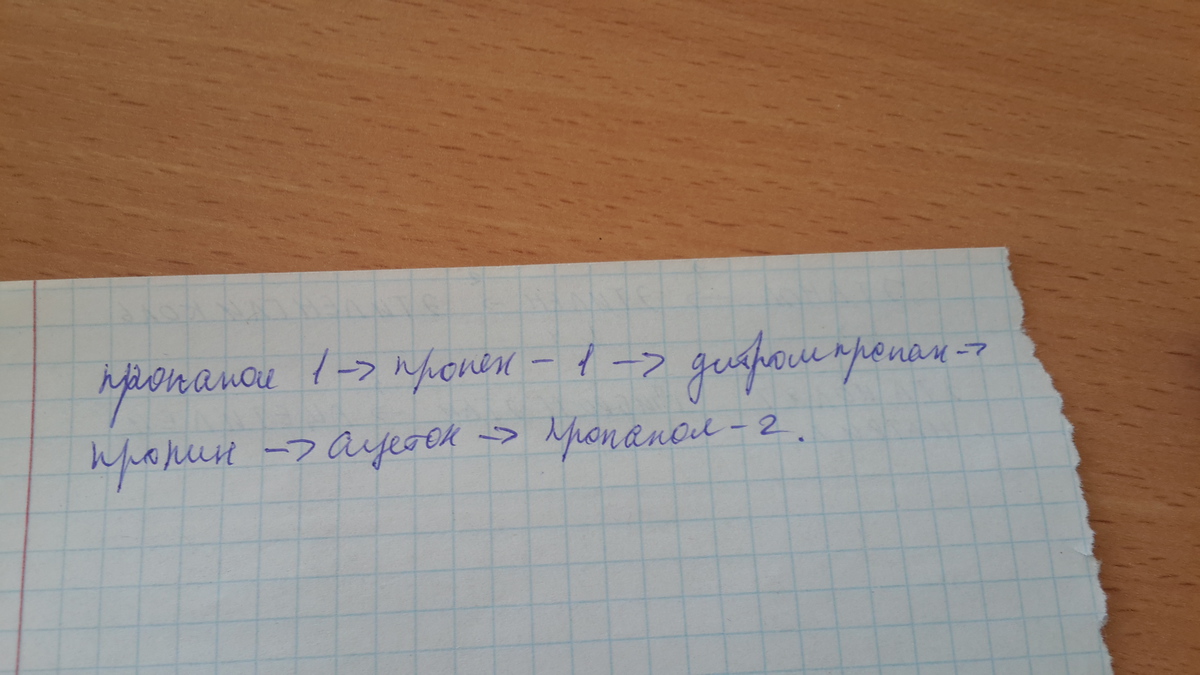 пропанол 1 -> пропен - 1 -> дибромпропан ->
пропин -> ацетон -> пропанол - 2.